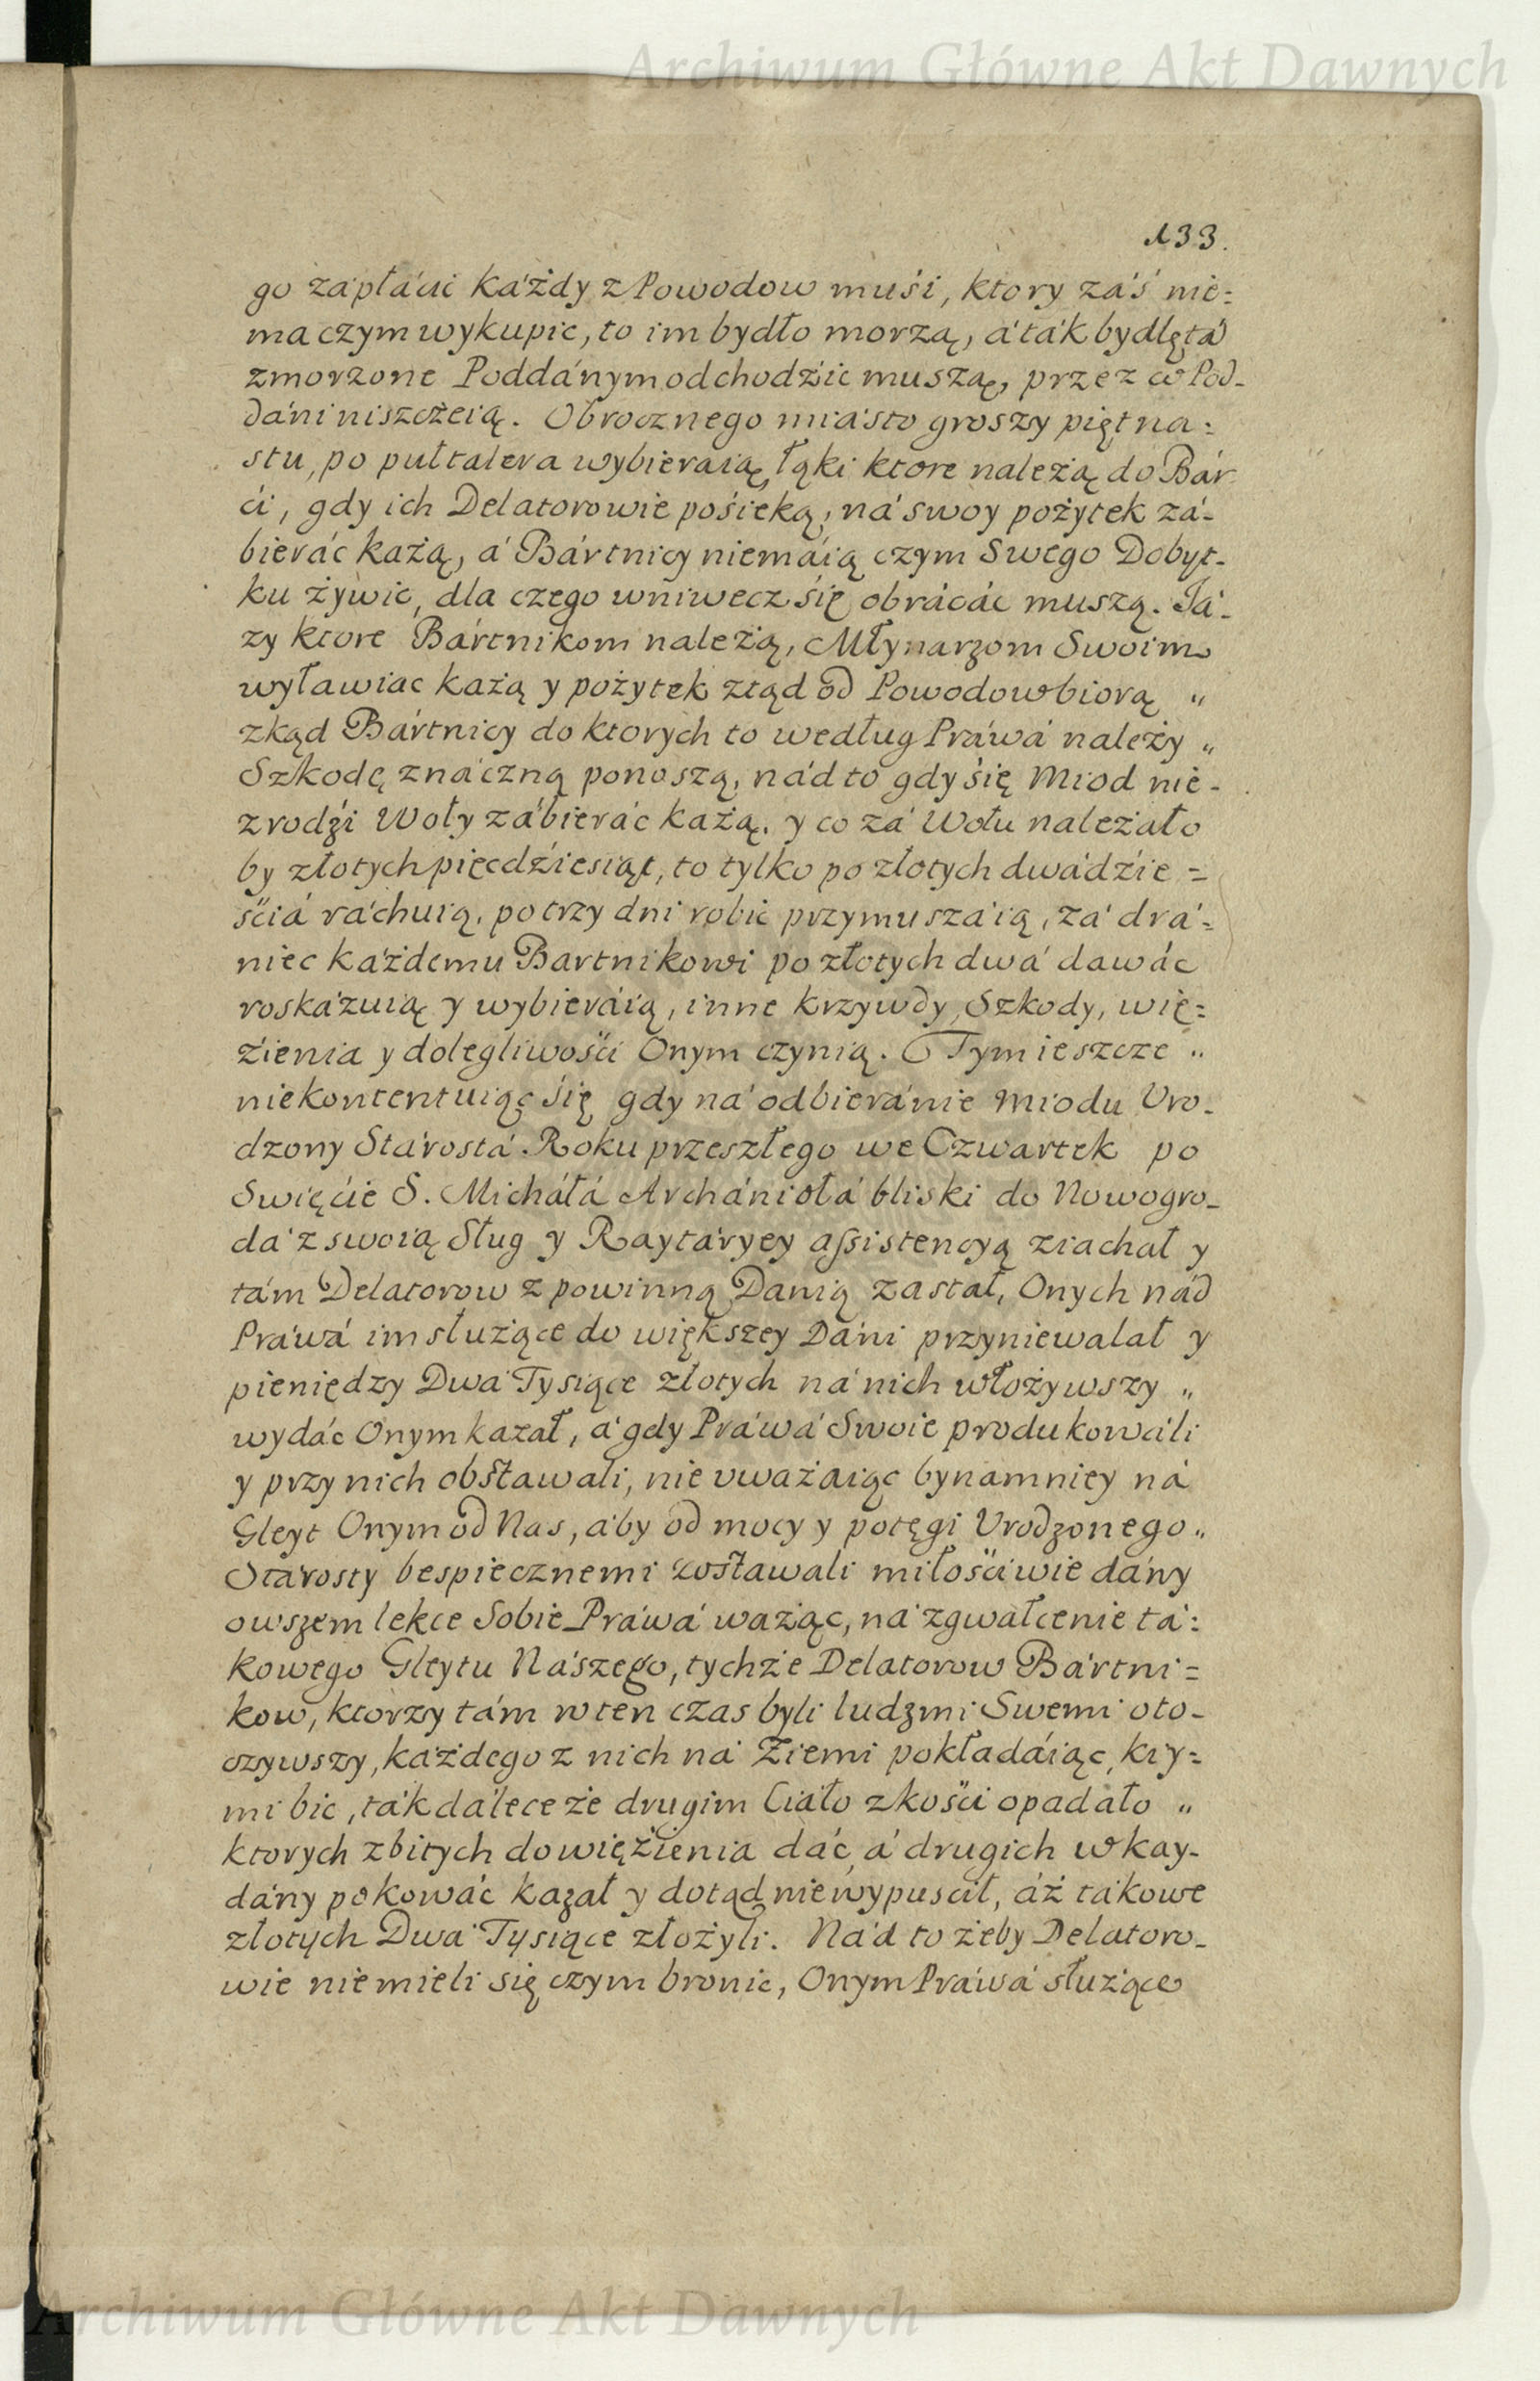 Archiwum Główne Akt Dawnych
133.
go zápłácić káżdy z Powodow muśi, ktory záś nie=
ma czym wykupic, to im bydło morzą, á ták bydlętá
zmorzone Poddánym odchodźic muszą, przez co Pod-
dáni niszczeią. Obrocznego miásto groszy piętna=
stu, po pułtalera wybieraią, łąki ktore należą do Bár
ći, gdy ich Delatorowie pośieką, ná swoy pożytek zá-
bieráć każą, á Bártnicy niemáią czym Swego Dobyt-
ku żywic, dla czego wniwecz śię obrácác muszą. Já-
zy ktore Bártnikom należą, Młynarzom Swoim
wyławiac każą y pożytek ztąd od Powodow biorą „
zkąd Bártnicy do ktorych to według Práwá należy „
Szkodę znáczną ponoszą, nád to gdy śię Miod nie-
zrodźi Woły zábieráć każą, y co zá Wołu należało
by złotych pięcdźiesiąt, to tylko po złotych dwádźie=
śćiá ráchuią, po trzy dni robić przymuszáią, zá drá=
niec káżdemu Bartnikowi po złotych dwá dawáć
roskázuią y wybieráią, inne krzywdy, Szkody, wię=
źienia y dolegliwośći Onym czynią. Tym ieszcze „
niekontentuiąc śię gdy ná odbieránie Miodu Uro-
dzony Stárostá Roku przeszłego we Czwartek po
Swięćie S. Micháłá Archániołá bliski do Nowogro-
dá z swoią Sług y Raytáryey assistencyą ziachał y
tám Delatorow z powinną Danią zastał, Onych nád
Práwá im służące do większey Dáni przyniewalał y
pieniędzy Dwá Tysiące złotych ná nich włożywszy „
wydáć Onym kazał, á gdy Práwá Swoie produkowáli
y przy nich obstawali, nie uważáiąc bynamniey ná
Gleyt Onym od Nas, áby od mocy y potęgi Urodzonego „
Stárosty bespiecznemi zostawali miłośćiwie dány
owszem lekce Sobie Práwá ważąc, ná zgwałcenie tá=
kowego Gleytu Nászego, tychże Delatorow Bártni=
kow, ktorzy tám w ten czas byli ludźmi Swemi oto-
czywszy, káżdego z nich ná Ziemi pokładáiąc, kiy=
mi bic, ták dálece że drugim Ciáło z kośći opadało „
ktorych zbitych do więźienia dáć, á drugich w kay-
dány pokowáć kazał y dotąd niewypuscił, áż tákowe
złotych Dwá Tysiące złożyli. Nád to żeby Delatoro-
wie niemieli się czym bronic, Onym Práwá służące
Archiwum Główne Akt Dawnych